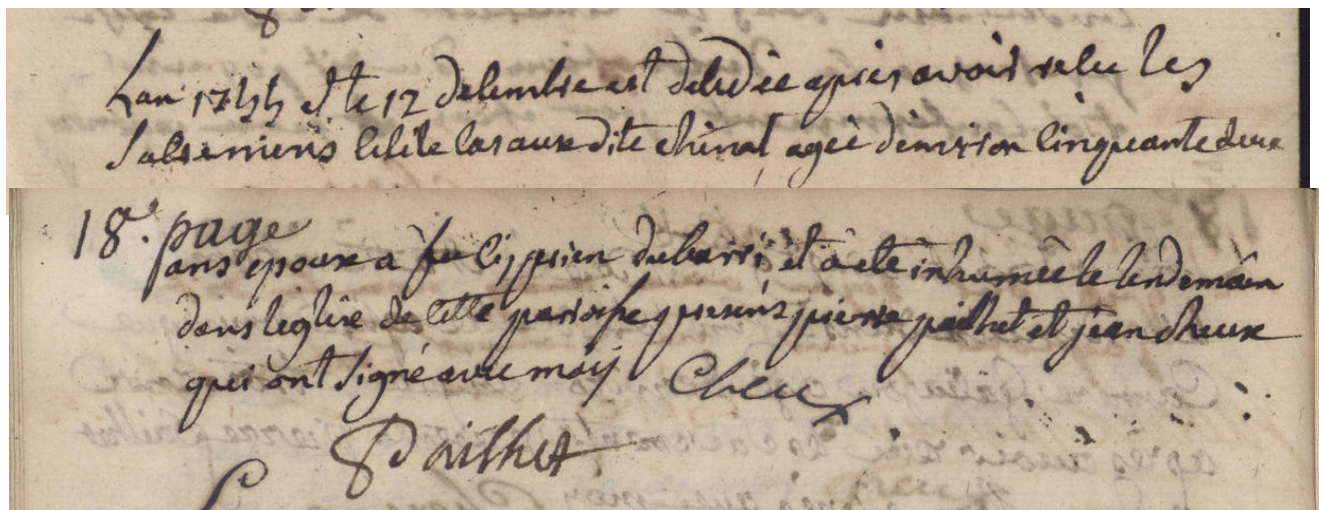 Lan 1755 et le 12 decembre est decedée apres avoir recu les
sacremens cecile lasauxe dite chinat agée denviron cinquante deux
18e. page
ans epouse a feu ciprien dubarri et a eté inhumée le lendemain
dans leglise de cette paroisse presens pierre pailhet et jean cheux
qui ont signé avec moy Cheux
Pailhet